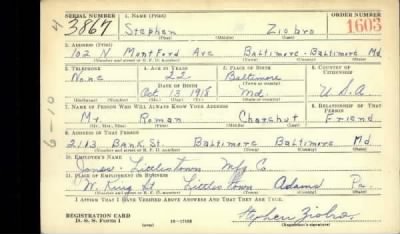 SERIAL NUMBER 1. NAME (Print) ORDER NUMBER
3867 Stephen Ziobro 1605
(First) (Middle) (Last)
2. ADDRESS (Print)
102 N Montford Ave Baltimore - Baltimore Md
(Number and street or R. F. D. number) (Town) (County) (State)
3. TELEPHONE 4. AGE IN YEARS 5. PLACE OF BIRTH 6. COUNTRY OF CITIZENSHIP
None 22 Baltimore
DATE OF BIRTH
Oct 13 1918 Md. U.S.A
7. NAME OF PERSON WHO WILL ALWAYS KNOW YOUR ADDRESS 8. RELATIONSHIP OF THAT PERSON
Mr. Roman Friend
(Mr., Mrs., Miss) (First) (Middle) (Last)
9. ADDRESS OF THAT PERSON
2113 Bank St. Baltimore Baltimore Md
(Number and street or R. F. D. number) (Town) (County) (State)
10. EMPLOYER'S NAME
Littlestown Mfg Co.
11. PLACE OF EMPLOYMENT OR BUSINESS
W. King St Littlestown Adams Pa.
(Number and street or R. F. D. number) (Town) (County) (State)
I AFFIRM THAT I HAVE VERIFIED ABOVE ANSWERS AND THAT THEY ARE TRUE.
REGISTRATION CARD
D. S. S. FORM 1 (over) Stephen Ziobro
(Registrant's signature)